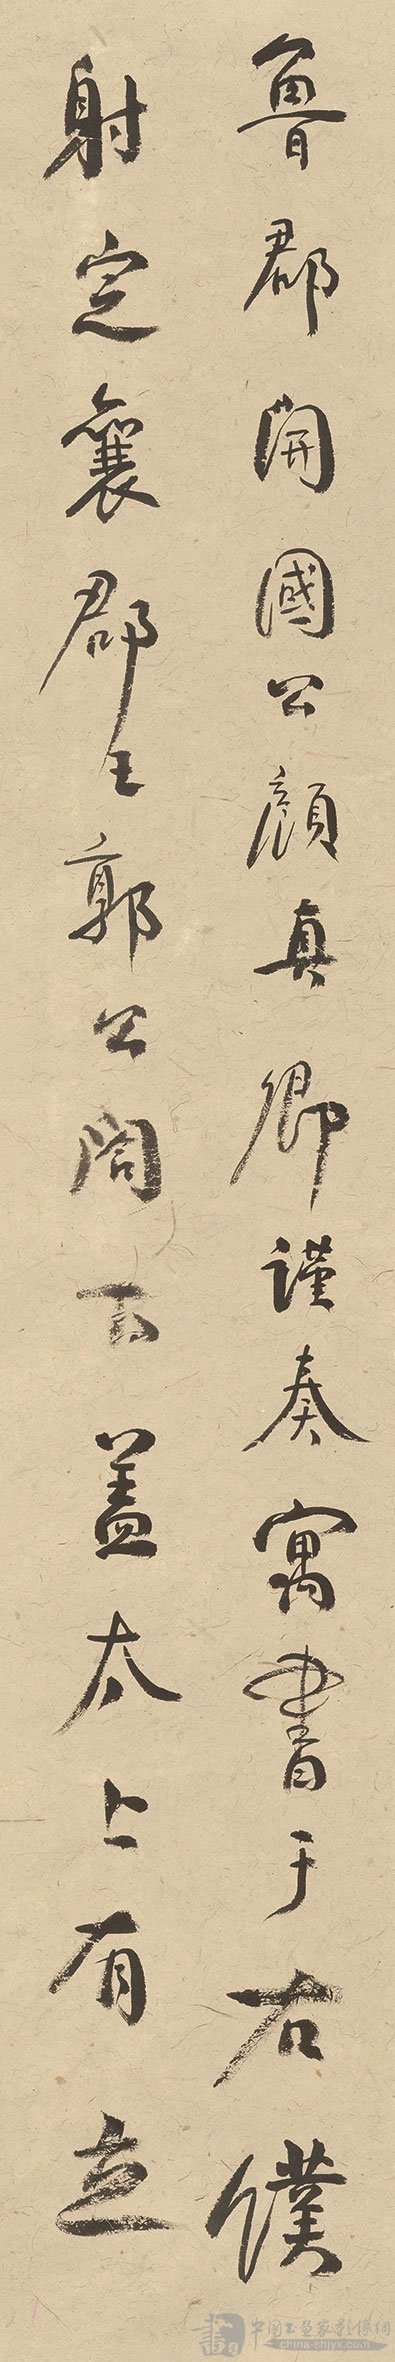 魯郡開國公顏真卿謹奏寓書于右僕
射定襄郡王郭公閤下蓋太上有立
中国书画家影像網
china-snjyx.com